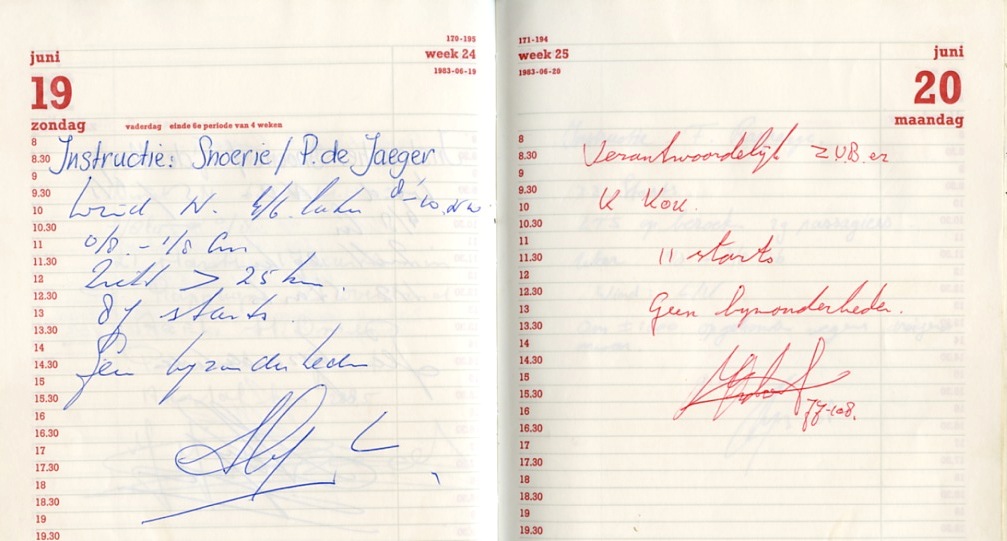 170-195
juni week 24
1983-06-19
19
zondag vaderdag einde 6e periode van 4 weken
8
8.30 Instructie: Snoerie/P. de Jaeger
9
9.30
10 N.
10.30
11 0/8 - 1/8 Cu
11.30
12 Zicht > 25 km.
12.30
13 87 starts.
13.30
14
14.30 Geen byzonderheden
15
15.30
16
16.30
17
17.30
18
18.30
19
19.30
171-194
week 25 juni
1983-06-20
20
maandag
8
8.30 Verantwoordelijk ZVB.er
9
9.30
10 K Kou.
10.30
11
11.30 11 starts
12
12.30
13 Geen byzonderheden.
13.30
14
14.30
15
15.30
16 77-108.
16.30
17
17.30
18
18.30
19
19.30